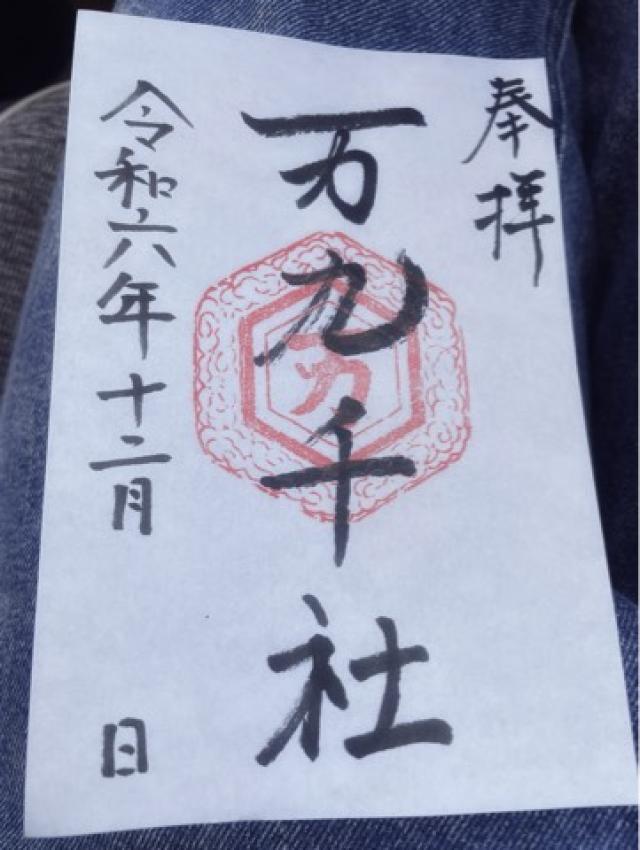 奉拝
万九千社
万
令和六年十二月 日